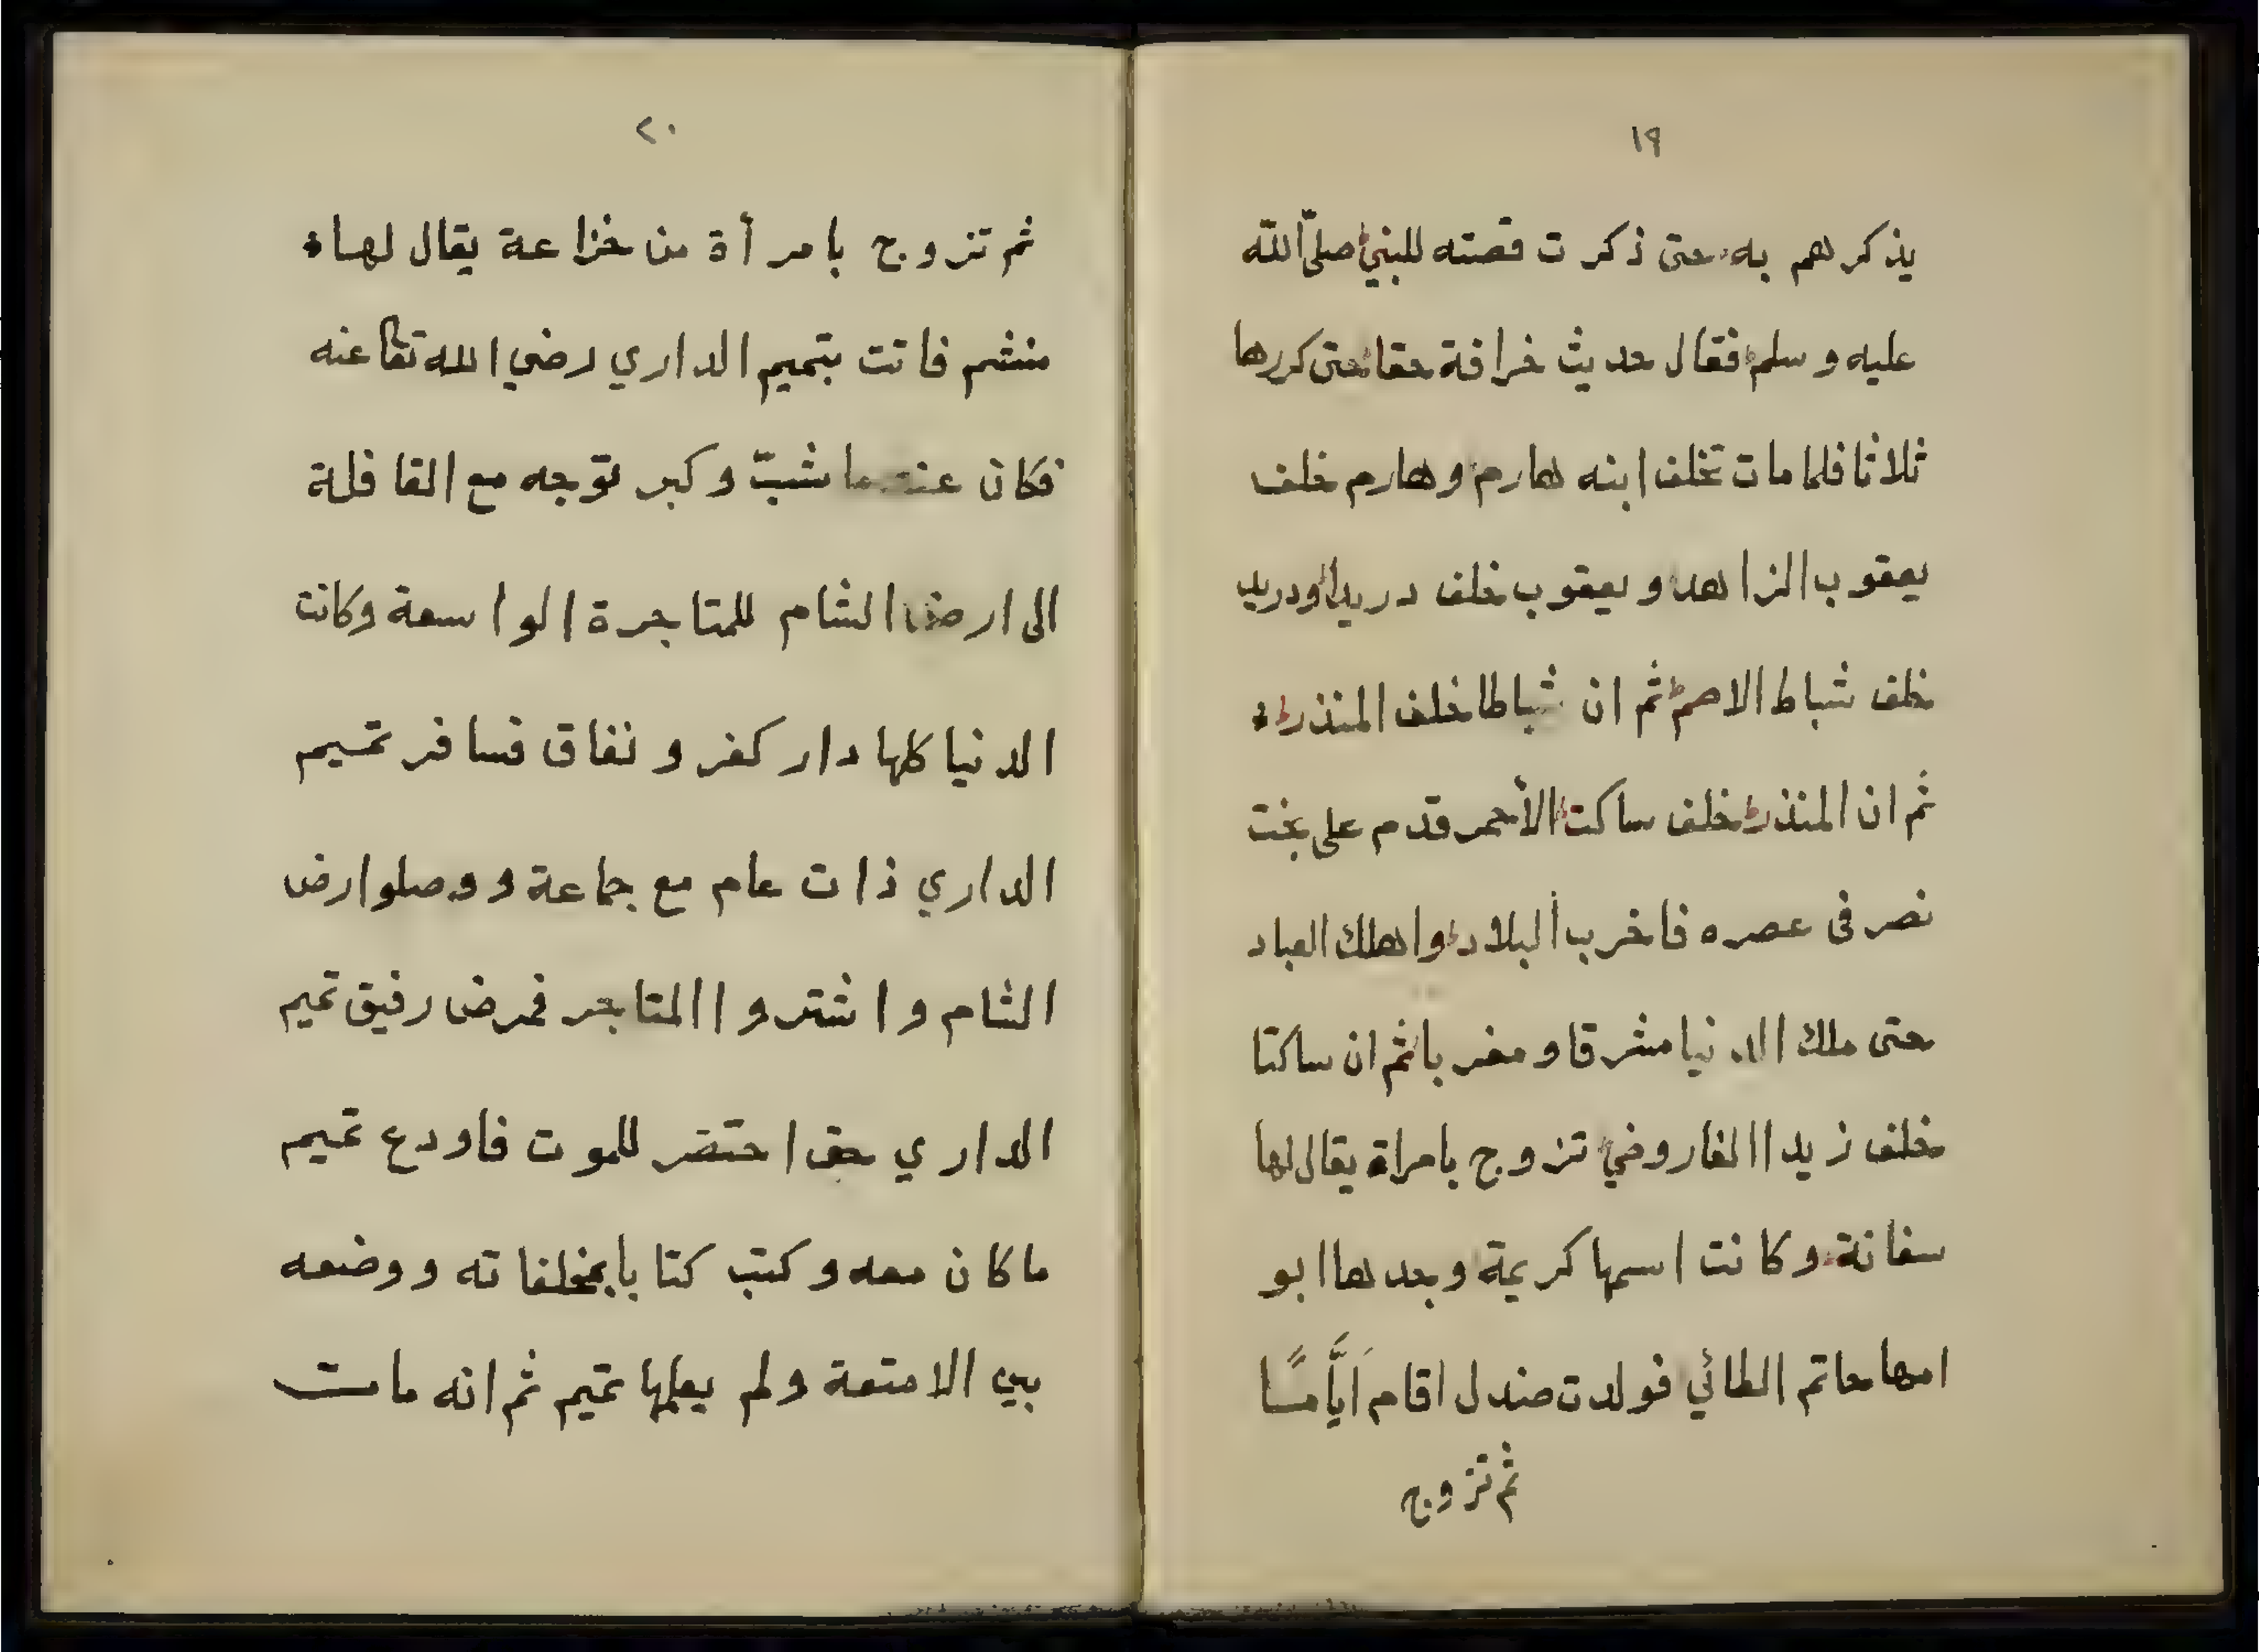 ١٩
يذكرهم به حتى ذكرت قصته للنبي صلى الله
عليه وسلم فقال حديث خرافة حقا حتى كررها
ثلاثا فلما مات تخلف ابنه هارم وهارم خلف
يعقوب الزاهد ويعقوب خلف دريدا ودريد
خلف شباط الاصم ثم ان شباطا خلف المنذر
ثم ان المنذر خلف ساكت الأحمر قدم على بخت
نصر في عصره فاخرب البلاد واهلك العباد
حتى ملك الدنيا مشرقا ومغربا ثم ان ساكتا
خلف زيدا الفاروضي تزوج بامراة يقال لها
سفانة وكانت اسمها كريمة وجدها ابو
امها حاتم الطائي فولدت صندل اقام أيَّامًا
ثم تزوج
٢٠
ثم تزوج بامرأة من خزاعة يقال لها
منشم فاتت بتميم الداري رضي الله تعا عنه
فكان عندما شبّ وكبر توجه مع القافلة
الى ارض الشام للمتاجرة الواسعة وكانت
الدنيا كلها دار كفر ونفاق فسافر تميم
الداري ذات عام مع جماعة ووصلوا ارض
الشام واشتروا المتاجر فمرض رفيق تميم
الداري حتى احتضر للموت فاودع تميم
ما كان معه وكتب كتابا بمخلفاته ووضعه
بين الامتعة ولم يعلمها تميم ثم انه مات